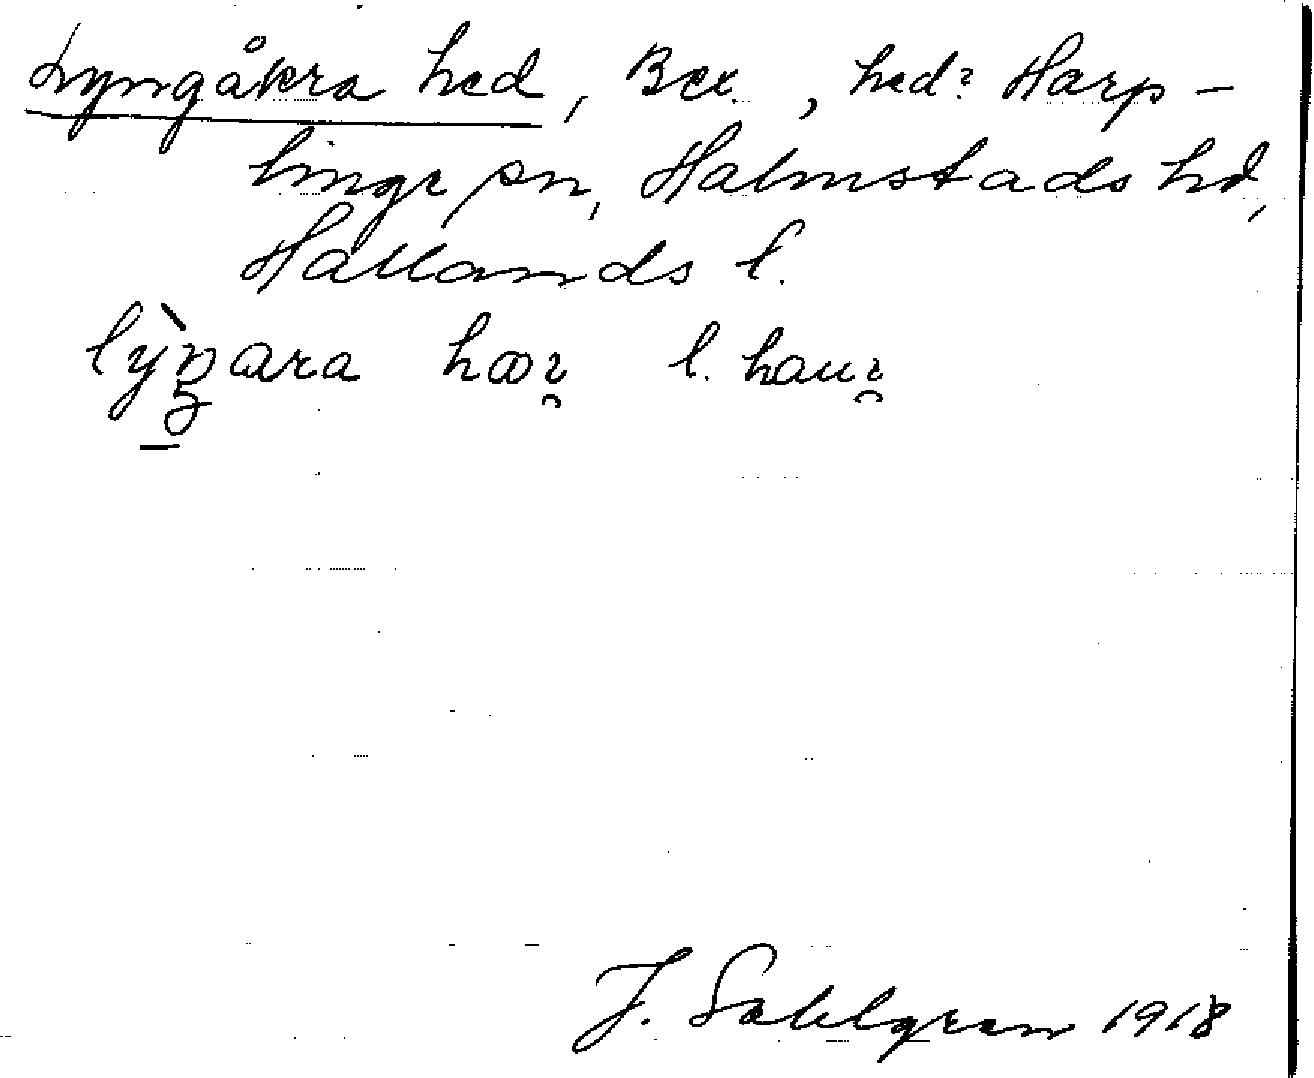 Lyngåkra hed, Bex., hed? Harp-
linge sn, Halmstads hd,
Hallands l.
l. 
J. Sahlgren 1918